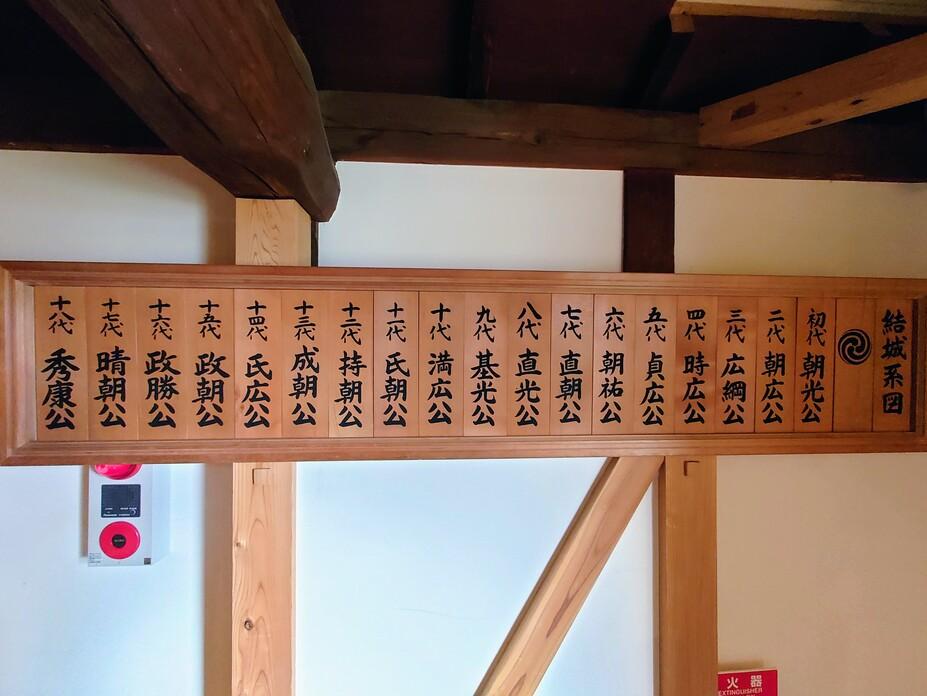 結城系図
初代 朝光公
二代 朝広公
三代 広綱公
四代 時広公
五代 貞広公
六代 朝祐公
七代 直朝公
八代 直光公
九代 基光公
十代 満広公
十一代 氏朝公
十二代 持朝公
十三代 成朝公
十四代 氏広公
十五代 政朝公
十六代 政勝公
十七代 晴朝公
十八代 秀康公
火器
EXTINGUISHER